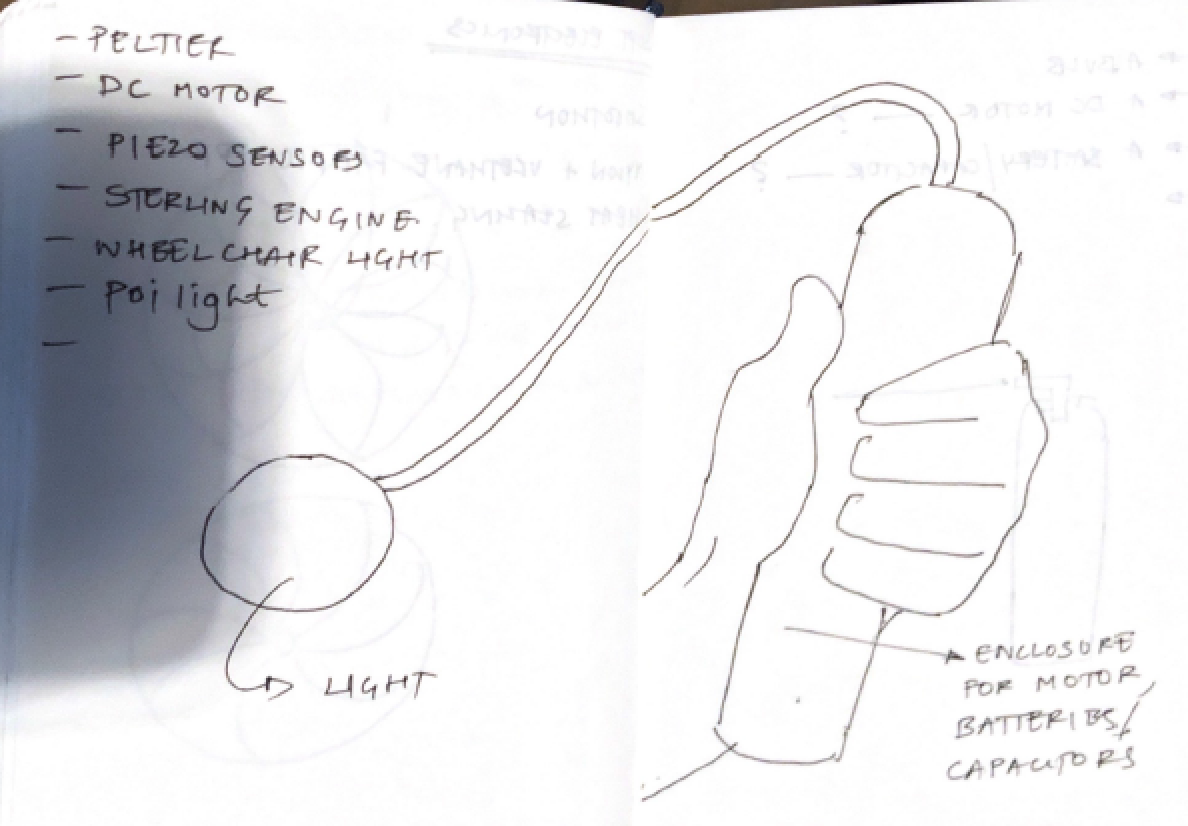 - PELTIER
- DC MOTOR
- PIEZO SENSORS
- STERLING ENGINE
- WHEELCHAIR LIGHT
- Poi light
-
LIGHT
ENCLOSURE
FOR MOTOR
BATTERIES/
CAPACITORS